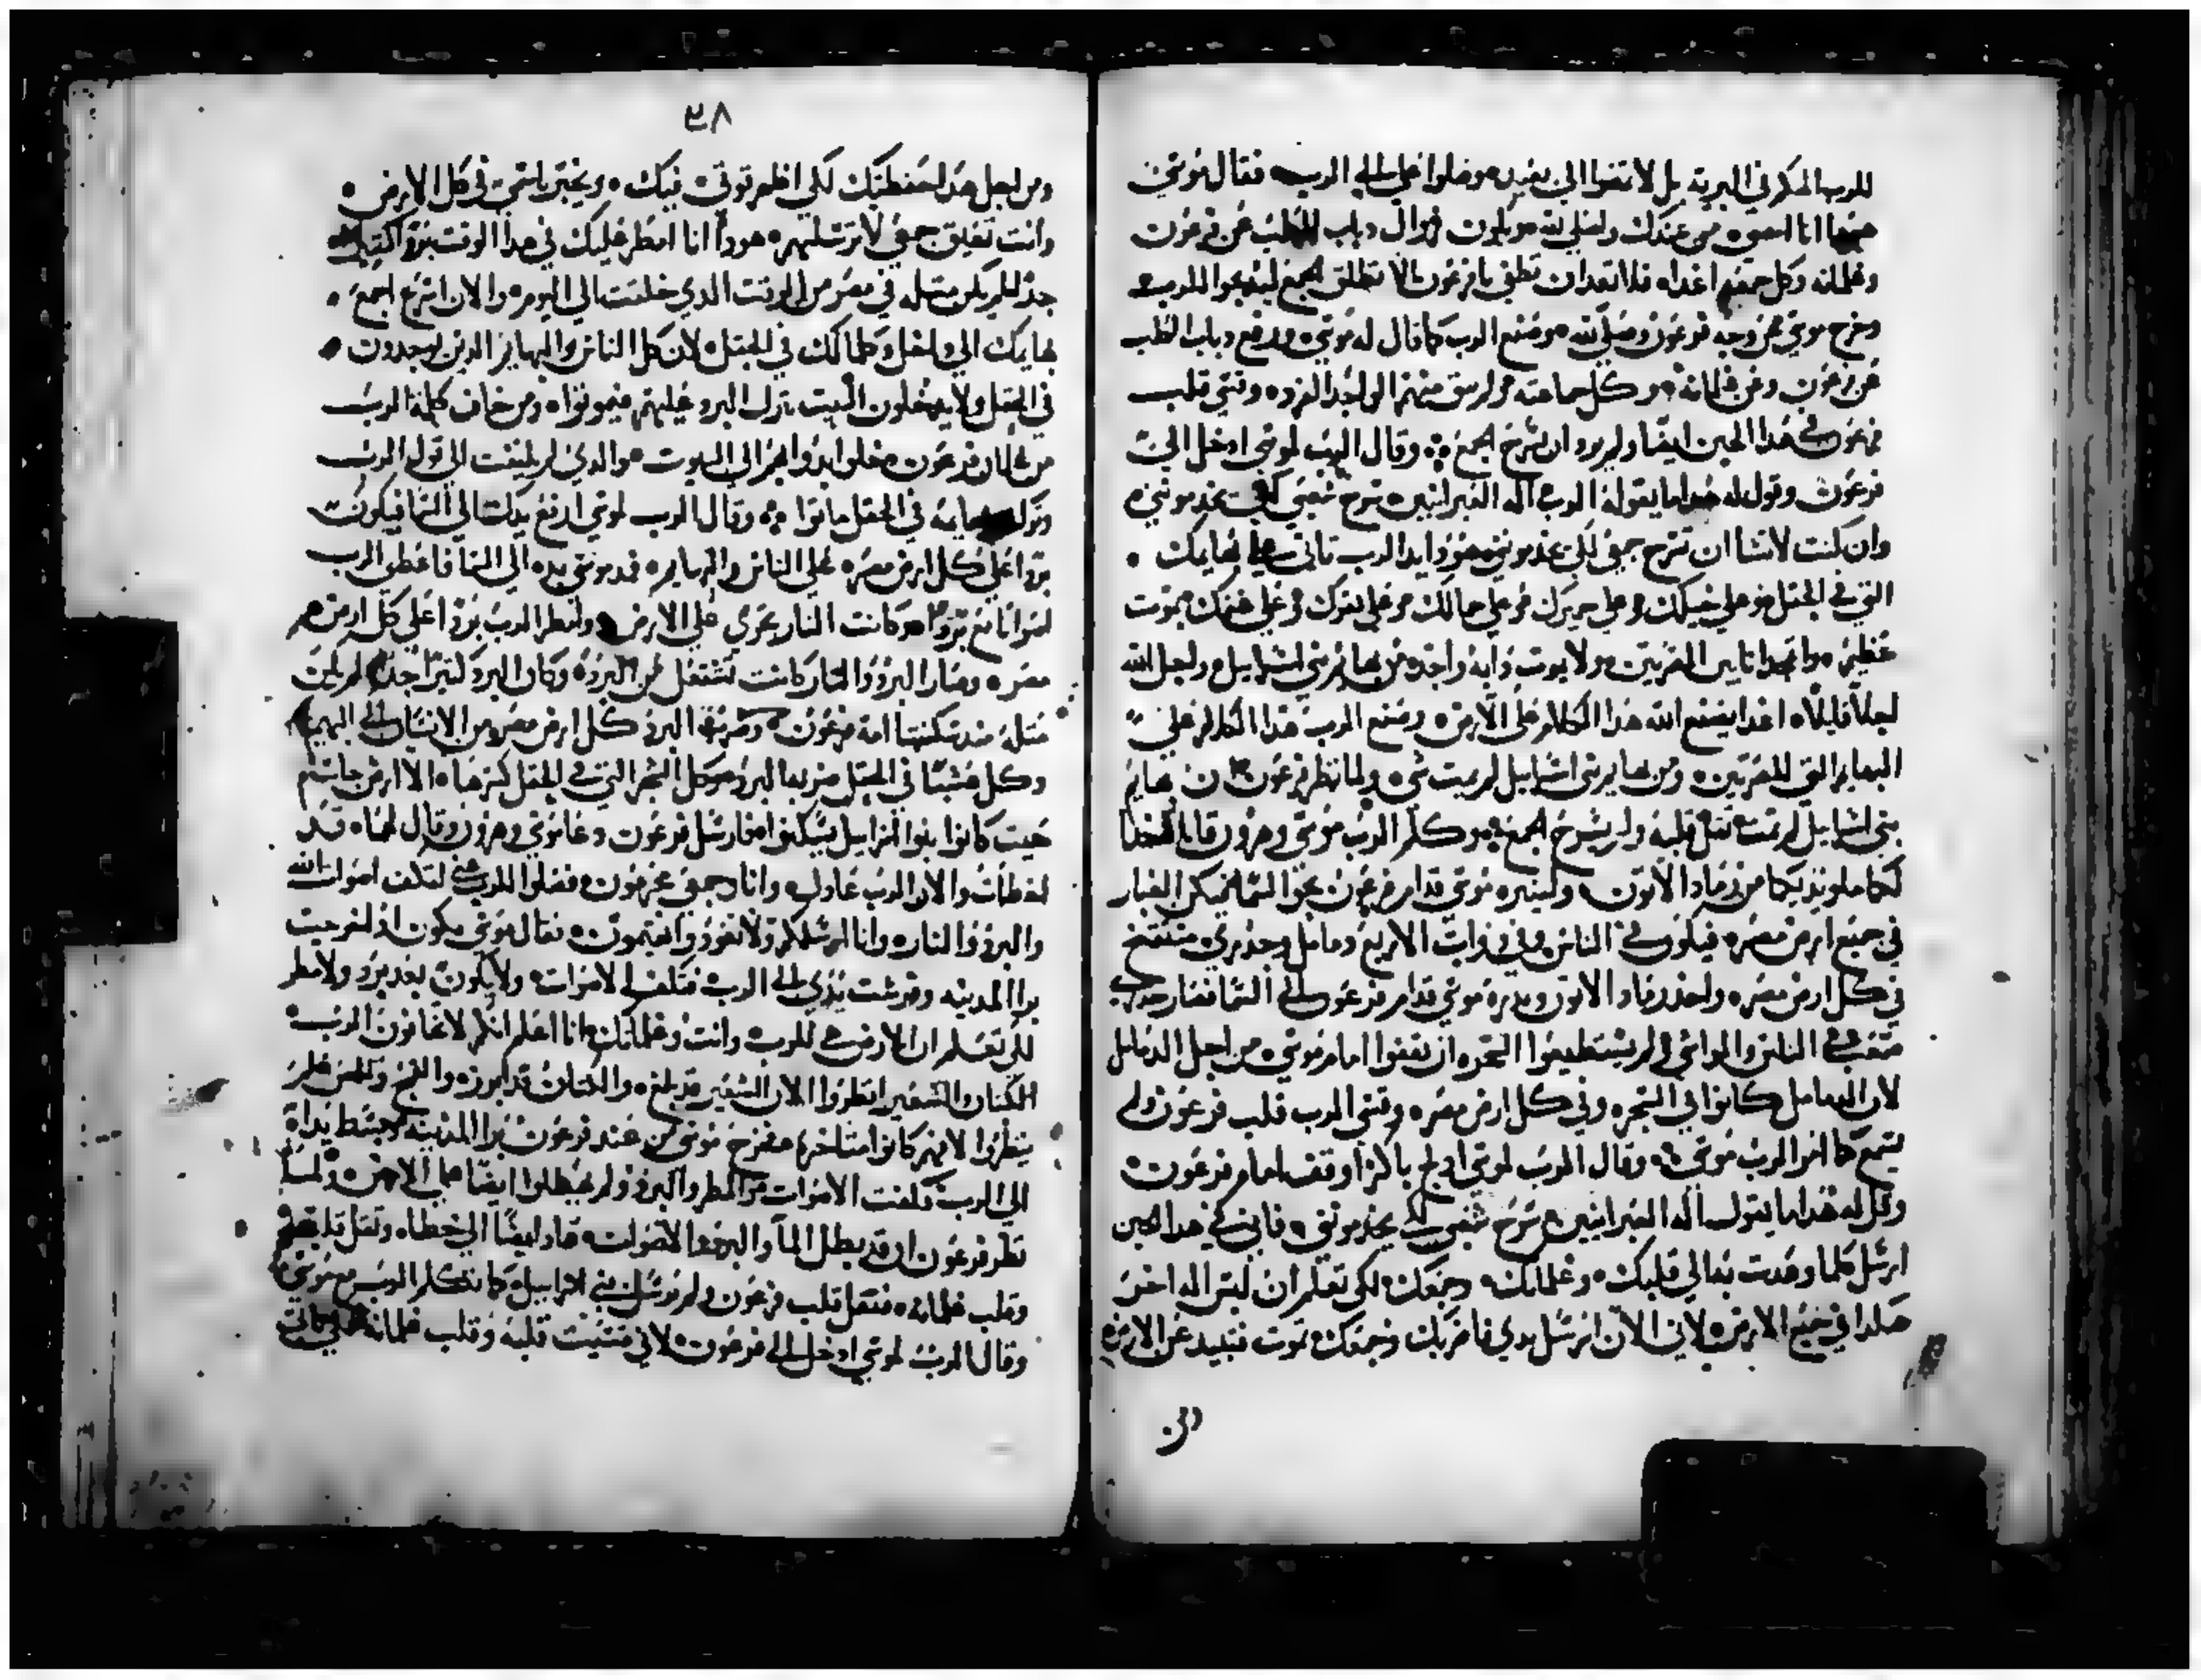 للرب الهكم في البرية بل لا تمضوا الي بعيد وصلوا علي الي الرب فقال موسي
من عندك واصلي لله ويكون زوال دباب الكلب عن فرعون
وغلمانه وكل جمعه اغدا فلا تعد ان تطغي يا فرعون لا تطلق الجمع ليذبحوا للرب
وخرج موسي من وجه فرعون وصلي لله وصنع الرب كما قال له موسي ورفع دباب الكلب
عن فرعون وعن غلمانه وكل جماعته ولم يبق منهم الواحد الفرد وقسي قلب
فرعون في هذا الحين ايضا ولم يرد ان يسرح الجمع وقال الرب لموسي ادخل الي
فرعون وقول له هذا ما يقوله الرب اله العبرانيين سرح شعبي لكي يخدموني
وان كنت لا تشا ان تسرح جمعي لكي يخدموني هوذا يد الرب تاتي علي بهايمك
التي في الحقل وعلي خيلك وعلي حميرك وعلي جمالك وعلي بقرك وعلي غنمك موت
عظيم المصريين ولا يموت دابة واحده من بهايم بني اسراييل وجعل الله
اجلا قليلا اغدا يصنع الله هذا الكلام علي الارض وصنع الرب هذا الكلام
البهايم التي للمصريين ومن بهايم بني اسراييل لم يمت شي ولما نظر فرعون ان بهايم
بني اسراييل لم تمت ثقل قلبه ولم يسرح الجمع وكلم الرب موسي وهرون قايلا خدا
لكما ملو يديكما من رماد الاتون ولينيره موسي قدام فرعون نحو السما فيكن الغبار
في جميع ارض مصر فيكون في الناس وفي ذوات الاربع دمامل وجدري منتفخ
في كل ارض مصر واخذ رماد الاتون وبدره موسي قدام فرعون الي السما فصار جدري
متنفخ في الناس والمواشي ولم يستطيعوا السحره ان يقفوا امام موسي من اجل الدمامل
لان الدمامل كانوا في السحره وفي كل ارض مصر وقسي الرب قلب فرعون ولم
يسمع كما امر الرب موسي وقال الرب لموسي ادلج باكرا وقف امام فرعون
وقل له هذا ما يقول اله العبرانيين سرح شعبي لكي يخدموني فاني في هذا الحين
ارسل كلما وعدت به الي قلبك وغلمانك وجمعك لكي تعلم ان ليس اله اخر
هكذا في جميع الارض لاني الان ارسل يدي فاضربك وجمعك موت فتبيد عن الارض
ومن
٣٨
ومن اجل هذا احفظتك لكي اظهر قوتي فيك ويخبر باسمي في كل الارض
وانت تعيق جمعي لا ترسلهم هودا انا امطر عليك في هذا الوقت بردا كتير
جدا لم يكن مثله في مصر من الوقت الذي خلقت الي اليوم والان اسرع اجمع
بهايمك الي داخل وكلما لك في الحقل لان كل الناس والبهايم الذين يوجدون
في الحقل ولا يدخلون البيت ينزل البرد عليهم فيموتوا ومن خاف كلمة الرب
من غلمان فرعون دخلوا بدوابهم الي البيوت والذي لم يلتفت الي قول الرب
وترك بهايمه في الحقل ماتوا وقال الرب لموسي ارفع يدك الي السما فيكون
بردا علي كل ارض مصر علي الناس والبهايم فمد موسي يده الي السما فاعطي الرب
اصواتا مع برد وكانت النار تجري علي الارض وامطر الرب بردا علي كل ارض
مصر وصار البرد والنار كانت تشتعل في البرد وكان البرد كتيرا جدا لم يكن
مثله منذ سكنها امة فرعون وضرب البرد كل ارض مصر من الانسان الي البهيمة
وكل عشبا في الحقل ضربها البرد وكل الشجر التي في الحقل كسرها الا ارض جاسم
حيث كانوا بنوا اسراييل يسكنوا فارسل فرعون ودعا موسي وهرون وقال لهما قد
اخطات والان الرب عادل وانا وجمعي مجرمون فصلوا للرب لتكف اصوات الله
والبرد والنار وانا ارسلكم ولا تعودوا تقيمون فقال موسي يكون اذا خرجت
برا المدينه وفرشت يدي الي الرب فتكف الاصوات ولا يكون بعد برد ولا مطر
لكي تعلم ان الارض هي للرب وانت وغلمانك انا اعلم انكم لا تخافون الرب
الكتان والشعير انظروا الان الشعير قد بلغ والكتان قد ابرزه والقمح والعلس فلم
يضروا لانهم كانوا متاخره فخرج موسي من عند فرعون برا المدينه وبسط يداه
الي الرب فكفت الاصوات والمطر والبرد ولم يهطلوا ايضا علي الارض ولما
نظر فرعون ان قد بطل الما والبرد والاصوات عاد ايضا الي خطاه وثقل قلبه
وقلب غلمانه فثقل قلب فرعون ولم يرسل بني اسراييل كما تكلم الرب مع موسي
وقال الرب لموسي ادخل الي فرعون لاني قسيت قلبه وقلب غلمانه